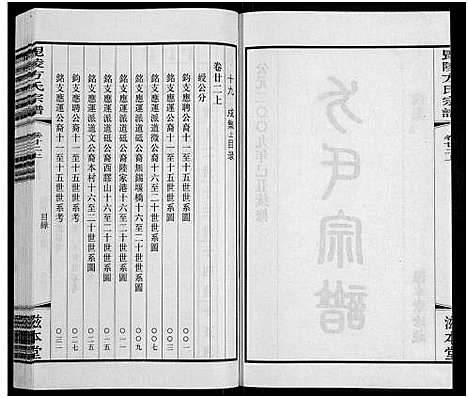 毘陵方氏宗譜
卷廿二上
滋本堂
方氏宗譜
公元二〇〇九年己丑續修
十九 成集上目錄
卷廿二上
綬公分
鈞支應聘公裔十一至十五世世系圖 〇〇一
銘支應運公裔十一至十五世世系圖 〇〇三
銘支應運派道微公裔無錫堰橋十六至二十世世系圖 〇〇九
銘支應運派道砥公裔陸家港十六至二十世世系圖 〇一一
銘支應運派道砥公裔西膠山十六至二十世世系圖 〇一五
銘支應運派道文公裔本村十六至二十世世系圖 〇二五
鈞支應聘公裔十一至十五世世系考 〇二七
銘支應運公裔十一至十五世世系考 〇三一
毘陵方氏宗譜
卷廿二上
目錄